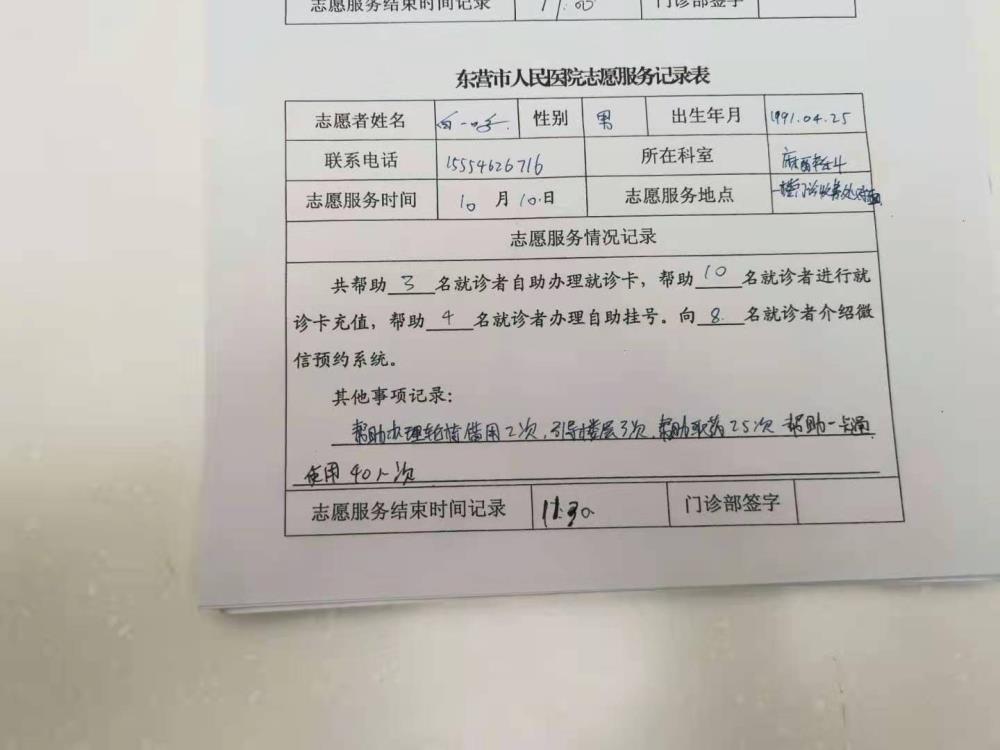 志愿服务结束时间记录 11:00 门诊部签字
东营市人民医院志愿服务记录表
志愿者姓名 性别 男 出生年月 1991.04.25
联系电话 15554626716 所在科室
志愿服务时间 10 月 10 日 志愿服务地点
志愿服务情况记录
共帮助 3 名就诊者自助办理就诊卡，帮助 10 名就诊者进行就
诊卡充值，帮助 4 名就诊者办理自助挂号。向 8 名就诊者介绍微
信预约系统。
其他事项记录：
帮助办理轮椅借用2次，引导楼层3次，帮助取药25次 帮助一卡通
使用40人次
志愿服务结束时间记录 11:30 门诊部签字